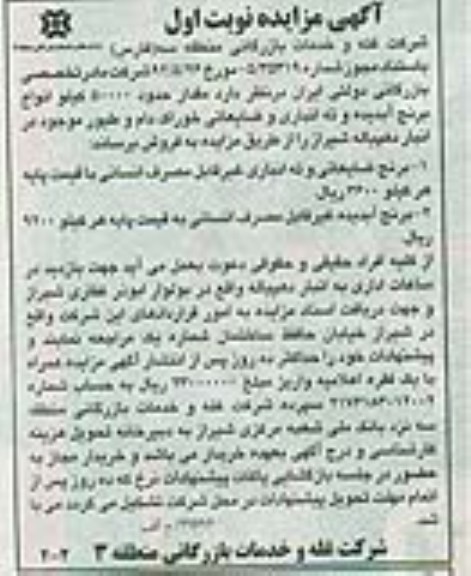 آگهی مزایده نوبت اول
شرکت غله و خدمات بازرگانی منطقه سه(فارس)
باستناد مجوز شماره مورخ شرکت مادر تخصصی
بازرگانی دولتی ایران درنظر دارد مقدار حدود ۵۰۰۰۰ کیلو انواع
برنج آبدیده و ته انباری و ضایعاتی خوراک دام و طیور موجود در
انبار دهپیاله شیراز را از طریق مزایده به فروش برساند:
۱- برنج ضایعاتی و ته انباری غیرقابل مصرف انسانی با قیمت پایه
هر کیلو ۳۶۰۰ ریال
۲- برنج آبدیده غیرقابل مصرف انسانی به قیمت پایه هر کیلو ۹۲۰۰
ریال
از کلیه افراد حقیقی و حقوقی دعوت بعمل می آید جهت بازدید در
ساعات اداری به انبار دهپیاله واقع در بولوار ابوذر غفاری شیراز
و جهت دریافت اسناد مزایده به امور قراردادهای این شرکت واقع
در شیراز خیابان حافظ ساختمان شماره یک مراجعه نمایند و
پیشنهادات خود را حداکثر ده روز پس از انتشار آگهی مزایده همراه
با یک فقره اعلامیه واریز مبلغ ریال به حساب شماره
سپرده شرکت غله و خدمات بازرگانی منطقه
سه نزد بانک ملی شعبه مرکزی شیراز به دبیرخانه تحویل هزینه
کارشناسی و درج آگهی بعهده خریدار می باشد و خریدار مجاز به
حضور در جلسه بازگشایی پاکات پیشنهادات نرخ که ده روز پس از
اتمام مهلت تحویل پیشنهادات در محل شرکت تشکیل می گردد می با
شد.
شرکت غله و خدمات بازرگانی منطقه ۳
۲-۲